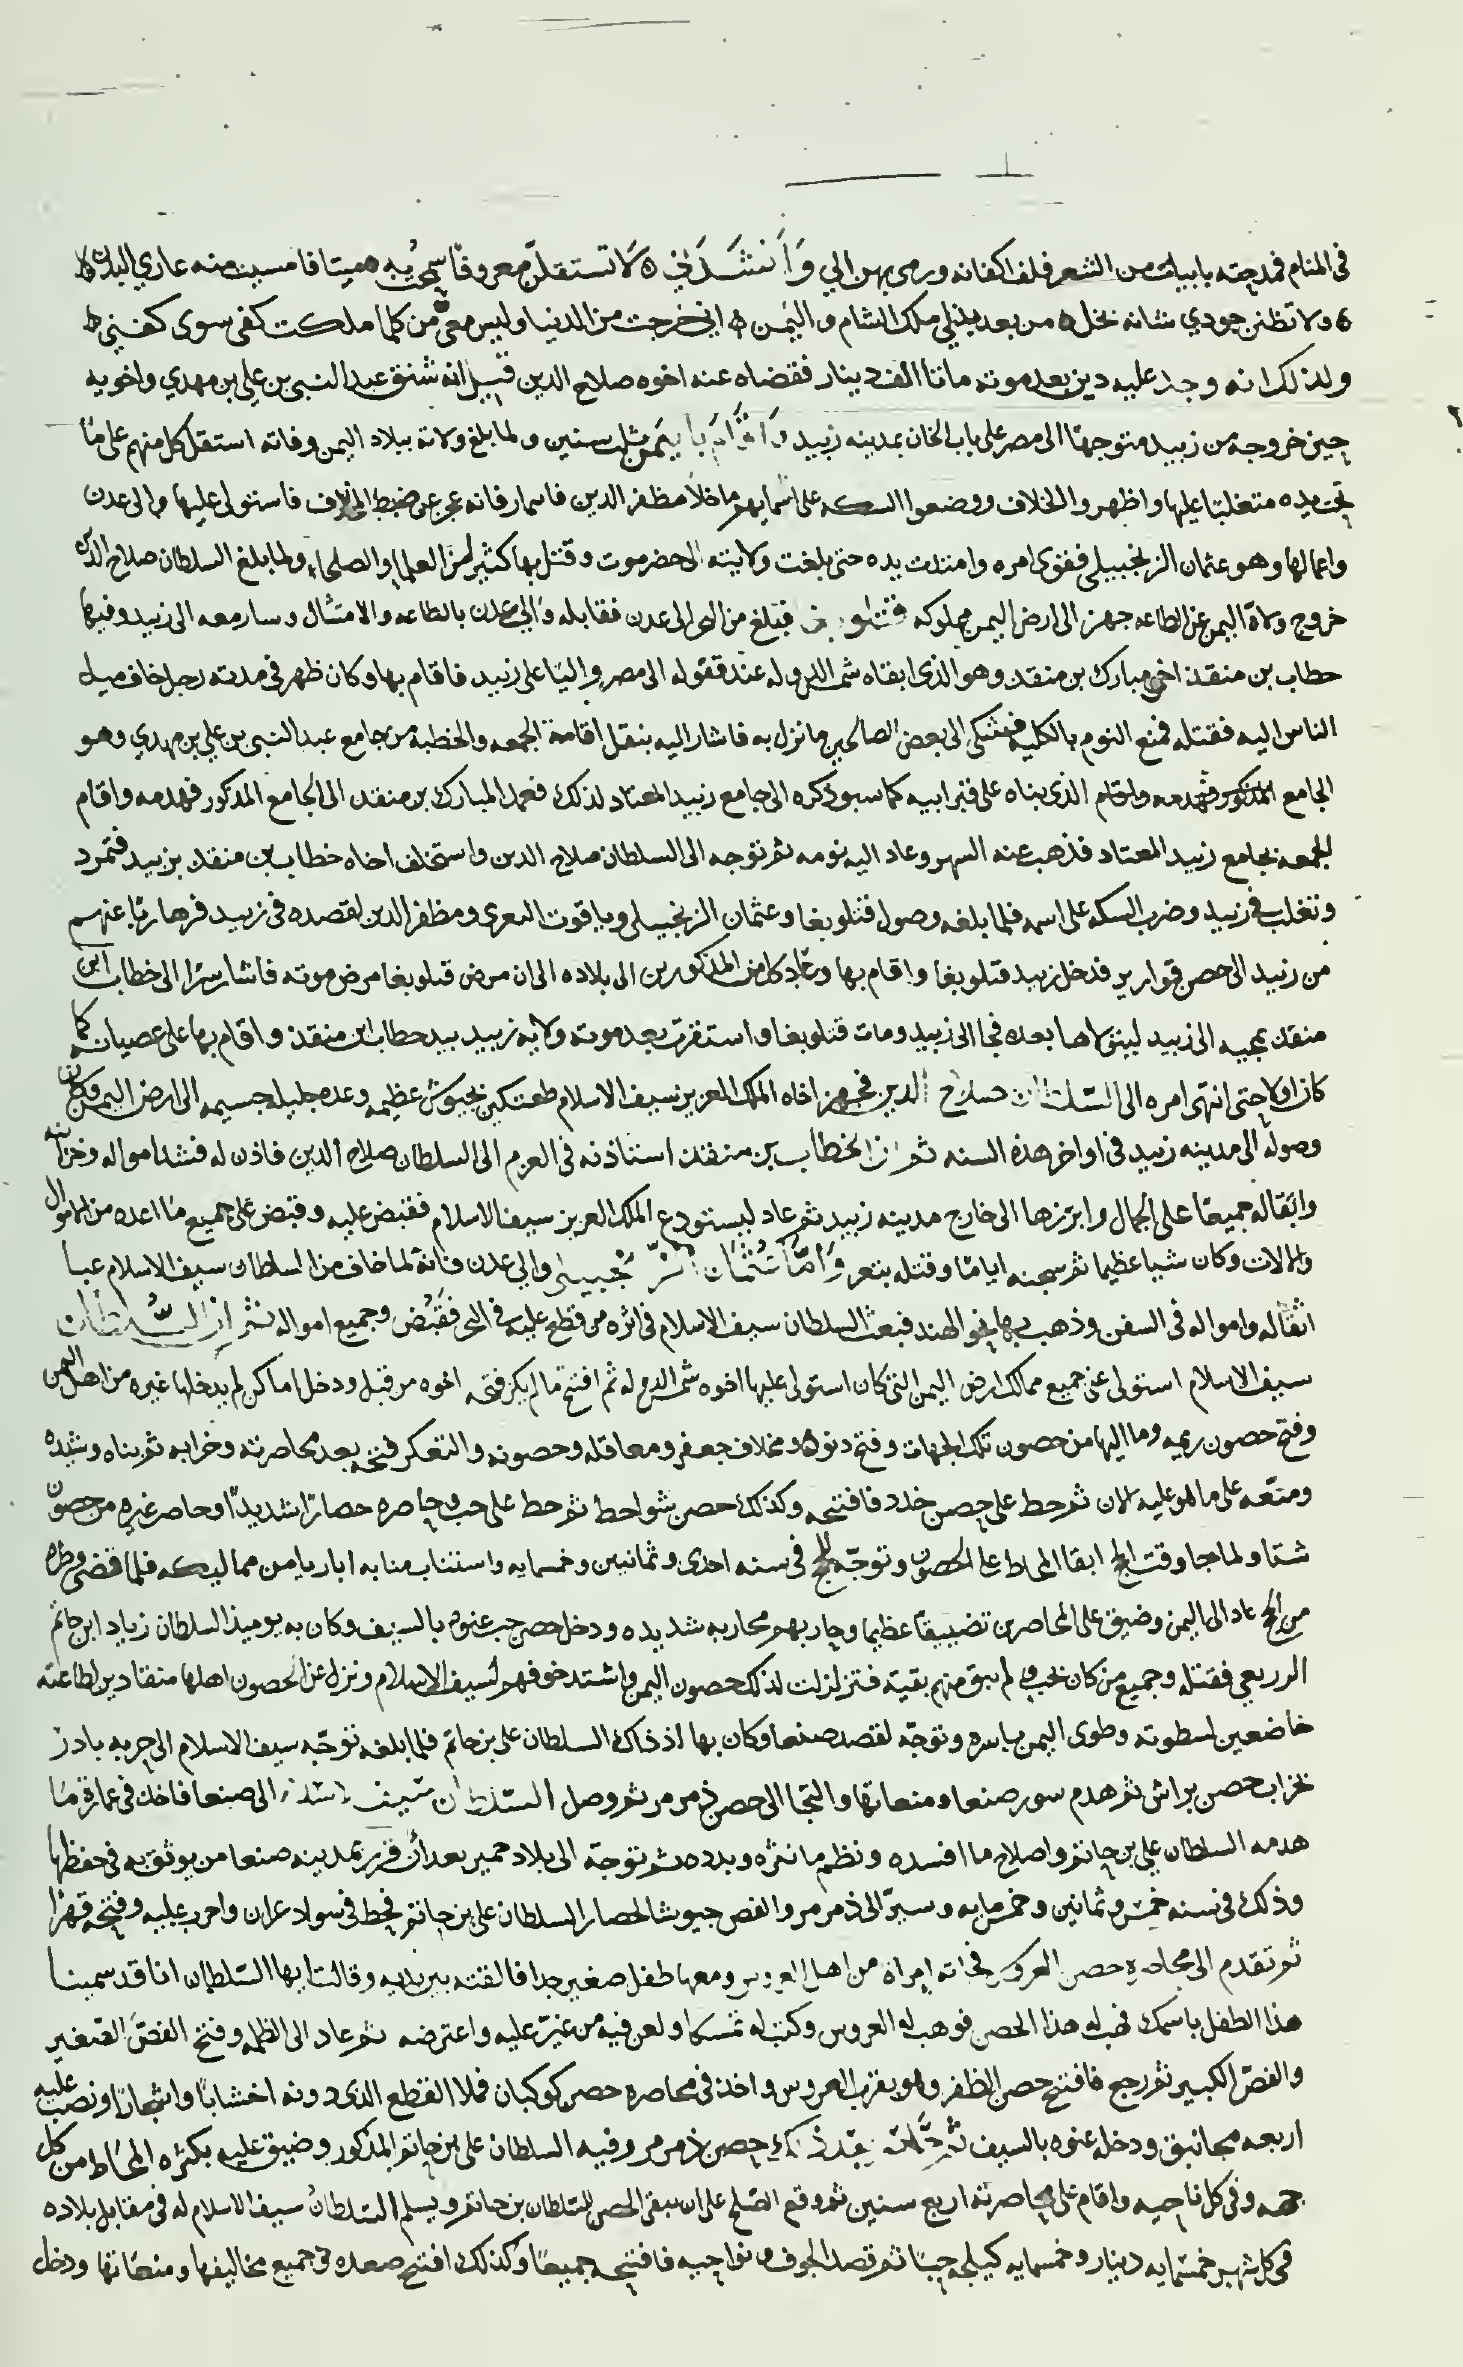 في المنام فمدحته بابيات من الشعر فلف اكفانه ورمى بهن الي وانشدني ه لا تستقلن معروفا سمحت به ميتا فامسيت منه عاري البدن
ه ولا تظنن جودي شانه بخل ه من بعد بذلي ملك الشام واليمن ه اني خرجت من الدنيا وليس معي من كلما ملكت كفى سوى كفني ه
ولذلك انه وجد عليه دين بعد موته مائتا الف دينار فقضاه عنه اخوه صلاح الدين قيل انه شنق عبد النبي بن علي بن مهدي واخويه
حين خروجه من زبيد متوجها الى مصر على باب الخان بمدينه زبيد واقام باليمن ثلث سنين ولما بلغ ولاته ببلاد اليمن وفاته استقل كل منهم على ما
تحت يده متغلبا عليها واظهروا الخلاف ووضعوا السكه على اسمايهم ما خلا مظفر الدين قايماز فانه عجز عن ضبط المخلاف فاستولى عليها والى عدن
واعمالها وهو عثمان الزنجبيلي فقوى امره وامتدت يده حتى بلغت ولايته الى حضرموت وقتل بها كثير من العلما والصلحاء ولما بلغ السلطان صلاح الدين
خروج ولاة اليمن عن الطاعه جهز الى ارض اليمن مملوكه قتلوبغا فبلغ من الى عدن فقابله والي عدن بالطاعه والامتثال وسار معه الى زبيد وفيها
حطاب بن منقذ اخي مبارك بن منقذ وهو الذي ابقاه شمس الدوله عند قفوله الى مصر واليا على زبيد فاقام بها وكان ظهر في مدته رجل خاف ميل
الناس اليه فقتله فمنع النوم بالكليه فشكى الى بعض الصالحين ما نزل به فاشار اليه بنقل اقامة الجمعه والخطبة من جامع عبد النبي بن علي بن مهدي وهو
الجامع المذكور فهدمه واقام الذي بناه على قبر ابيه كما سبق ذكره الى جامع زبيد المعتاد لذلك فعمد المبارك بن منقذ الى الجامع المذكور فهدمه واقام
الجمعه بجامع زبيد المعتاد فذهب عنه السهر وعاد اليه نومه ثم توجه الى السلطان صلاح الدين واستخلف اخاه خطاب بن منقذ بزبيد فتمرد
وتغلب في زبيد وضرب السكه على اسمه فلما بلغه وصول قتلوبغا وعثمان الزنجبيلي وياقوت التعزي ومظفر الدين لقصده في زبيد فر هاربا عنهم
من زبيد الى حصن قوارير فدخل زبيد قتلوبغا واقام بها وعاد كل من المذكورين الى بلاده الى ان مرض قتلوبغا مرض موته فاشار سرا الى خطاب ابن
منقذ بمجيه الى زبيد ليتولاها بعده فجا الى زبيد ومات قتلوبغا واستقرت بعد موته ولايه زبيد بيد حطاب ابن منقذ واقام بها على عصيانه كما
كان اولا حتى انتهى امره الى السلطان صلاح الدين فجهز اخاه الملك العزيز سيف الاسلام طغتكين بجيوش عظيمه وعده جليله جسيمه الى ارض اليمن وكان
وصوله الى مدينه زبيد في اواخر هذه السنه ثم ان الخطاب بن منقذ استاذنه في العزم الى السلطان صلاح الدين فاذن له فشد امواله وخزاينه
واثقاله جميعا على الجمال وابرزها الى خارج مدينه زبيد ثم عاد ليستودع الملك العزيز سيف الاسلام فقبض عليه وقبض على جميع ما اعده من الاموال
والالات وكان شيا عظيما ثم سجنه اياما وقتله بتعز واما عثمان الزنجبيلي والي عدن فانه لما خاف من السلطان سيف الاسلام عبا
اثقاله وامواله في السفن وذهب بها نحو الهند فبعث السلطان سيف الاسلام في اثره من قطع عليه في البحر فقبض وجميع امواله ثم ان السلطان
سيف الاسلام استولى على جميع ممالك ارض اليمن التي كان استولى عليها اخوه شمس الدوله ثم افتتح ما لم يكن فتحه اخوه من قبل ودخل اماكن لم يدخلها غيره من اهل اليمن
وفتح حصون ريمه وما اليها من حصون تلك الجهات وفتح دنوه ومخلاف جعفر ومعاقله وحصونه والتعكر فتحه بعد محاصرته وخرابه ثم بناه وشيده
ومتعه على ما هو عليه الان ثم حط على حصن خدد فافتتحه وكذلك حصن شواحط ثم حط على حب وحاصره حصارا شديدا وحاصر غيره من حصون
شتا ولما جا وقت الحج ابقا المحاط على الحصون وتوجه للحج في سنه احدى وثمانين وخمسمايه واستناب منابه ابار يا من مماليكه فلما قضى وطره
من الحج عاد الى اليمن وضيق على المحاصرين تضييقا عظيما وحاربهم محاربه شديده ودخل حصن حب عنوه بالسيف وكان به يوميذ السلطان زياد ابن حاتم
الزريعي فقتله وجميع من كان بحب ولم يبق منهم بقية فتزلزلت لذلك حصون اليمن واشتد خوفهم لسيف الاسلام ونزل عن الحصون اهلها منقادين لطاعته
خاضعين لسطوته وطوى اليمن باسره وتوجه لقصد صنعا وكان بها اذ ذاك السلطان علي بن حاتم فلما بلغه توجه سيف الاسلام الى حربه بادر
بخراب حصن براش ثم هدم سور صنعا ومنعاتها والتجا الى حصن ذمرمر ثم وصل السلطان سيف الاسلام الى صنعا فاخذ في عمارة ما
هدمه السلطان علي بن حاتم واصلاح ما افسده ونظم ما نثره وبدده ثم توجه الى بلاد حمير بعد أن قرر بمدينه صنعا من يوثق به في حفظها
وذلك في سنه خمس وثمانين وخمسمايه وسيرا الى ذمرمر والفص جيوشا لحصار السلطان علي بن حاتم فحط في سواد عزان واحرب عليه وفتحه قهرا
ثم تقدم الى محاصرة حصن العروس فجاته امراة من اهل العروس ومعها طفل صغير جدا فالقته بين يديه وقالت ايها السلطان انا قد سمينا
هذا الطفل باسمك فهب له هذا الحصن فوهب له العروس وكتب له تمسكا ولعن فيه من غير عليه واعترضه ثم عاد الى الظلمه وفتح الفص الصغير
والفص الكبير ثم رجع فافتتح حصن الظفر وهو بقرب العروس واخذ في محاصره حصن كوكبان فملا القطع الذي دونه اخشابا واشجارا ونصب عليه
اربعه مجانيق ودخله عنوه بالسيف ثم حط بعد ذلك حصن ذمرمر وفيه السلطان علي بن حاتم المذكور وضيق عليه بكثره المحاط من كل
جهه وفي كل ناحيه واقام على محاصرته اربع سنين ثم وقع الصلح على ان يبقى الحصن للسلطان بن حاتم ويسلم السلطان سيف الاسلام له في مقابل بلاده
في كل شهر خمسمايه دينار وخمسمايه كيلجه حبا ثم قصد الجوف ونواحيه فافتتحه جميعا وكذلك افتتح صعده وجميع مخاليفها ومنعاتها ودخل